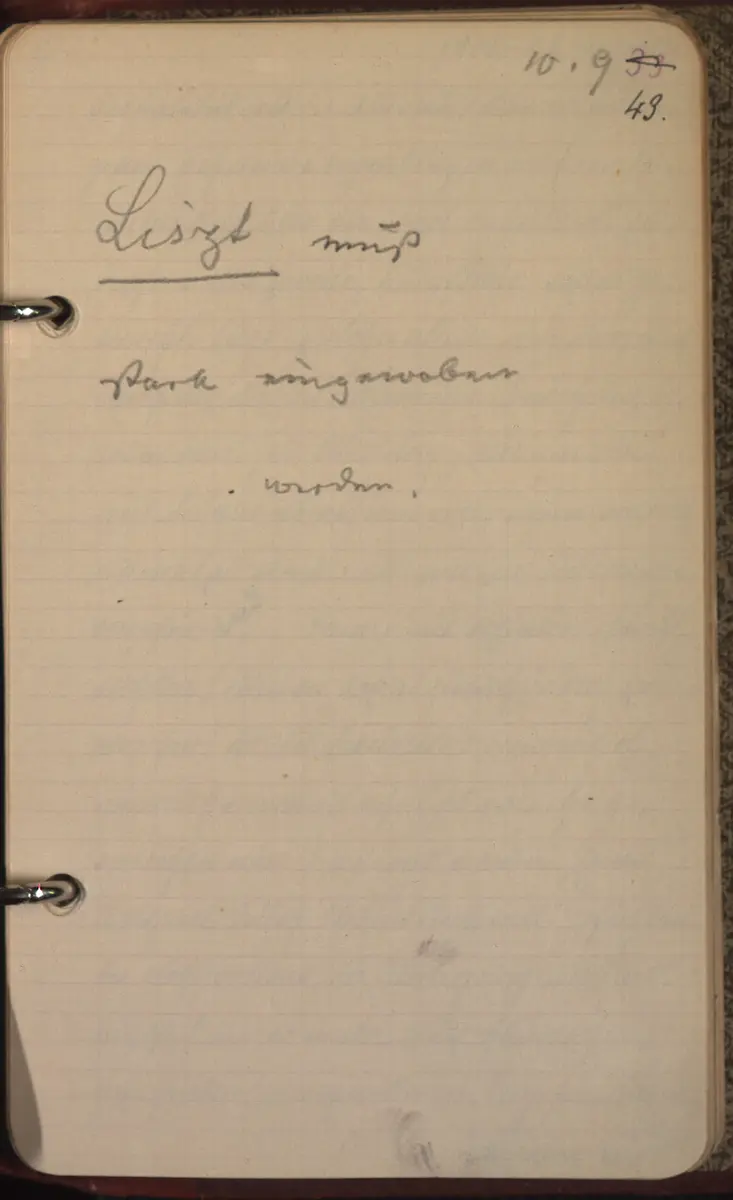 10.9 33
43.
Liszt muß
stark eingewoben
werden.